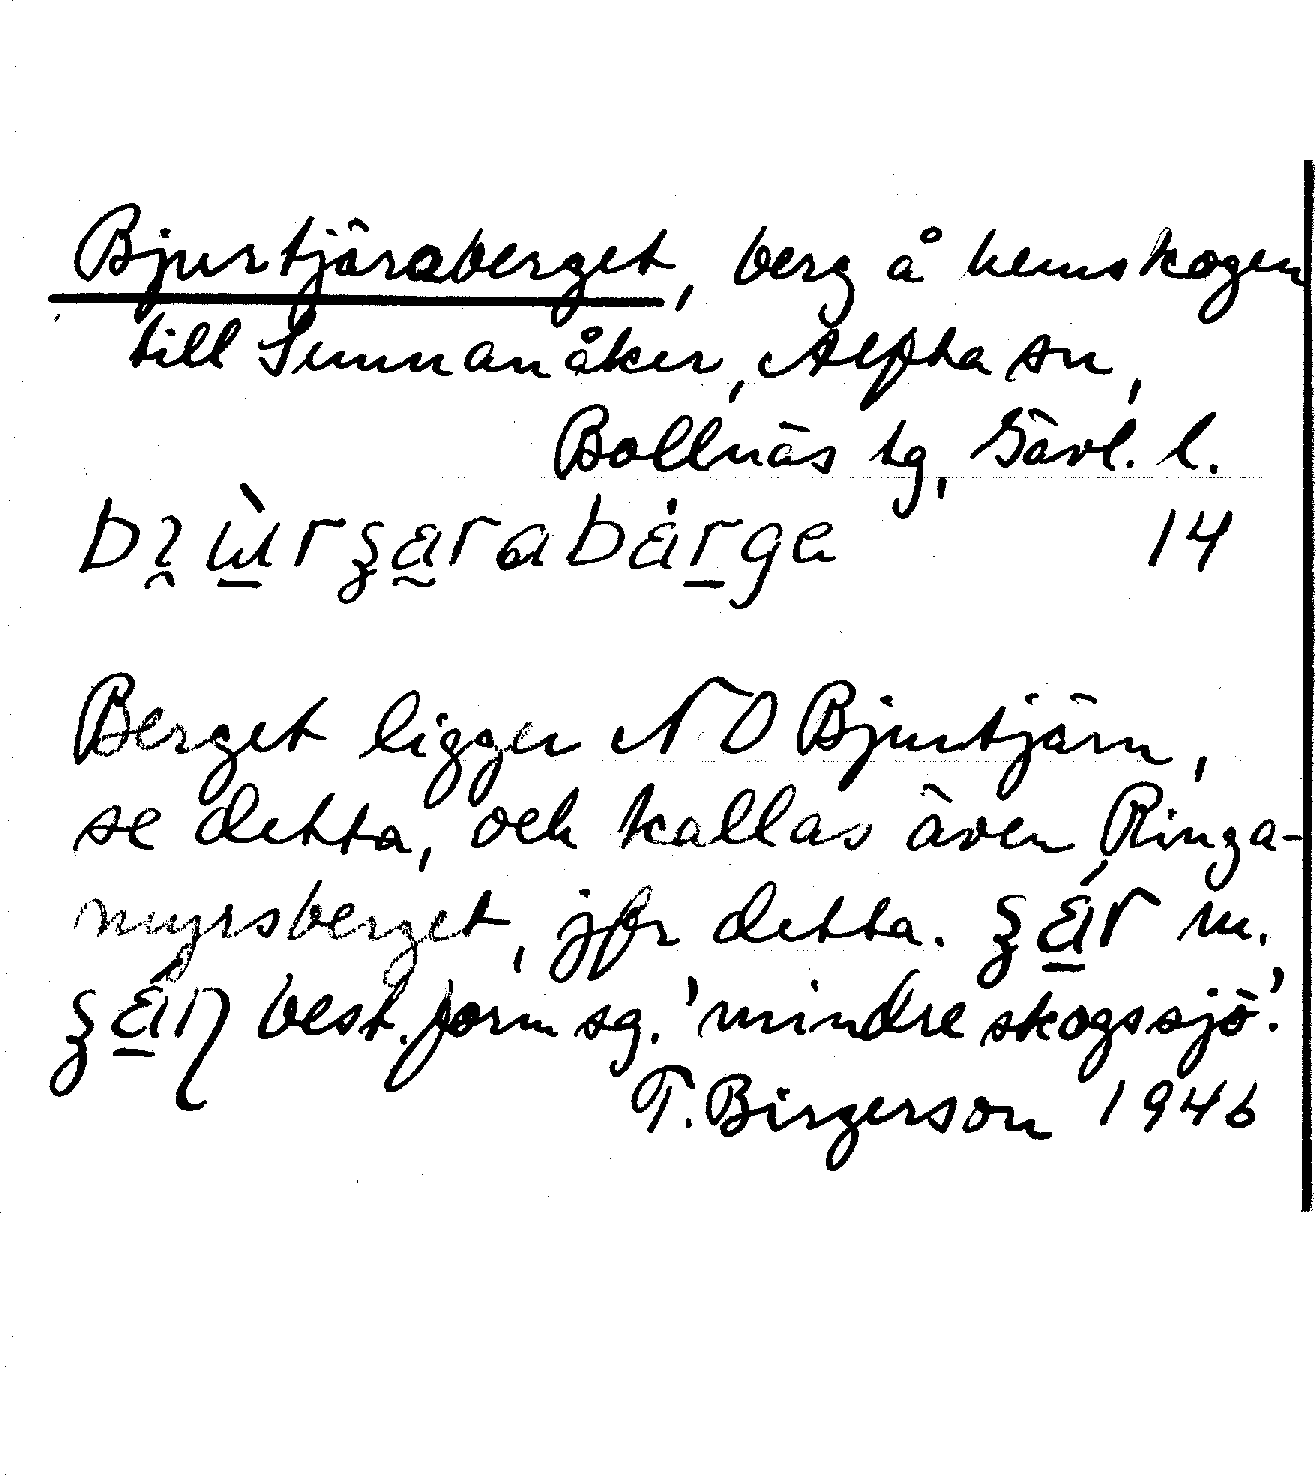 Bjurtjäraberget, berg å hemskogen
till Sunnanåker, Alfta sn,
Bollnäs tg, Gävl. l.
14
Berget ligger NO Bjurtjärn,
se detta, och kallas även Ringa-
myrsberget, jfr detta. m.
best. form sg. 'mindre skogssjö'.
T. Birgerson 1946